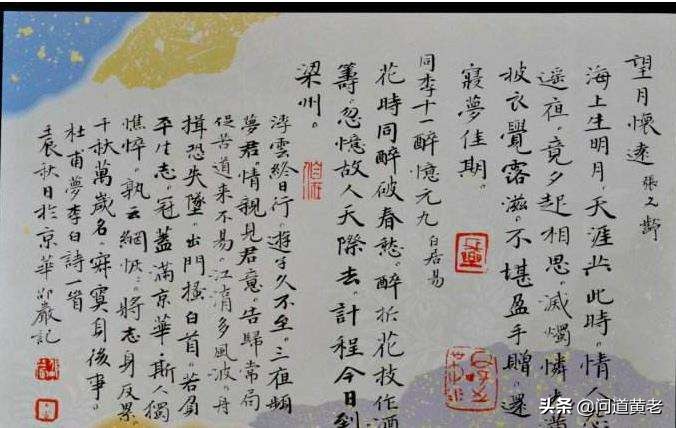 望月懷遠 張九齡
海上生明月。天涯共此時。情人怨
遥夜。竟夕起相思。滅燭憐光滿
披衣覺露滋。不堪盈手贈。還
寢夢佳期。
同李十一醉憶元九 白居易
花時同醉破春愁。醉折花枝作酒
籌。忽憶故人天際去。計程今日到
梁州。
浮雲終日行。遊子久不至。三夜頻
夢君。情親見君意。告歸常局
促。苦道来不易。江湖多風波。舟
楫恐失墜。出門搔白首。若負
平生志。冠蓋滿京華。斯人獨
憔悴。孰云網恢。將志身反累。
千秋萬歲名。寂寞身後事。
杜甫夢李白詩一首
壬辰秋日於京華 邵巖記
头条 @问道黄老